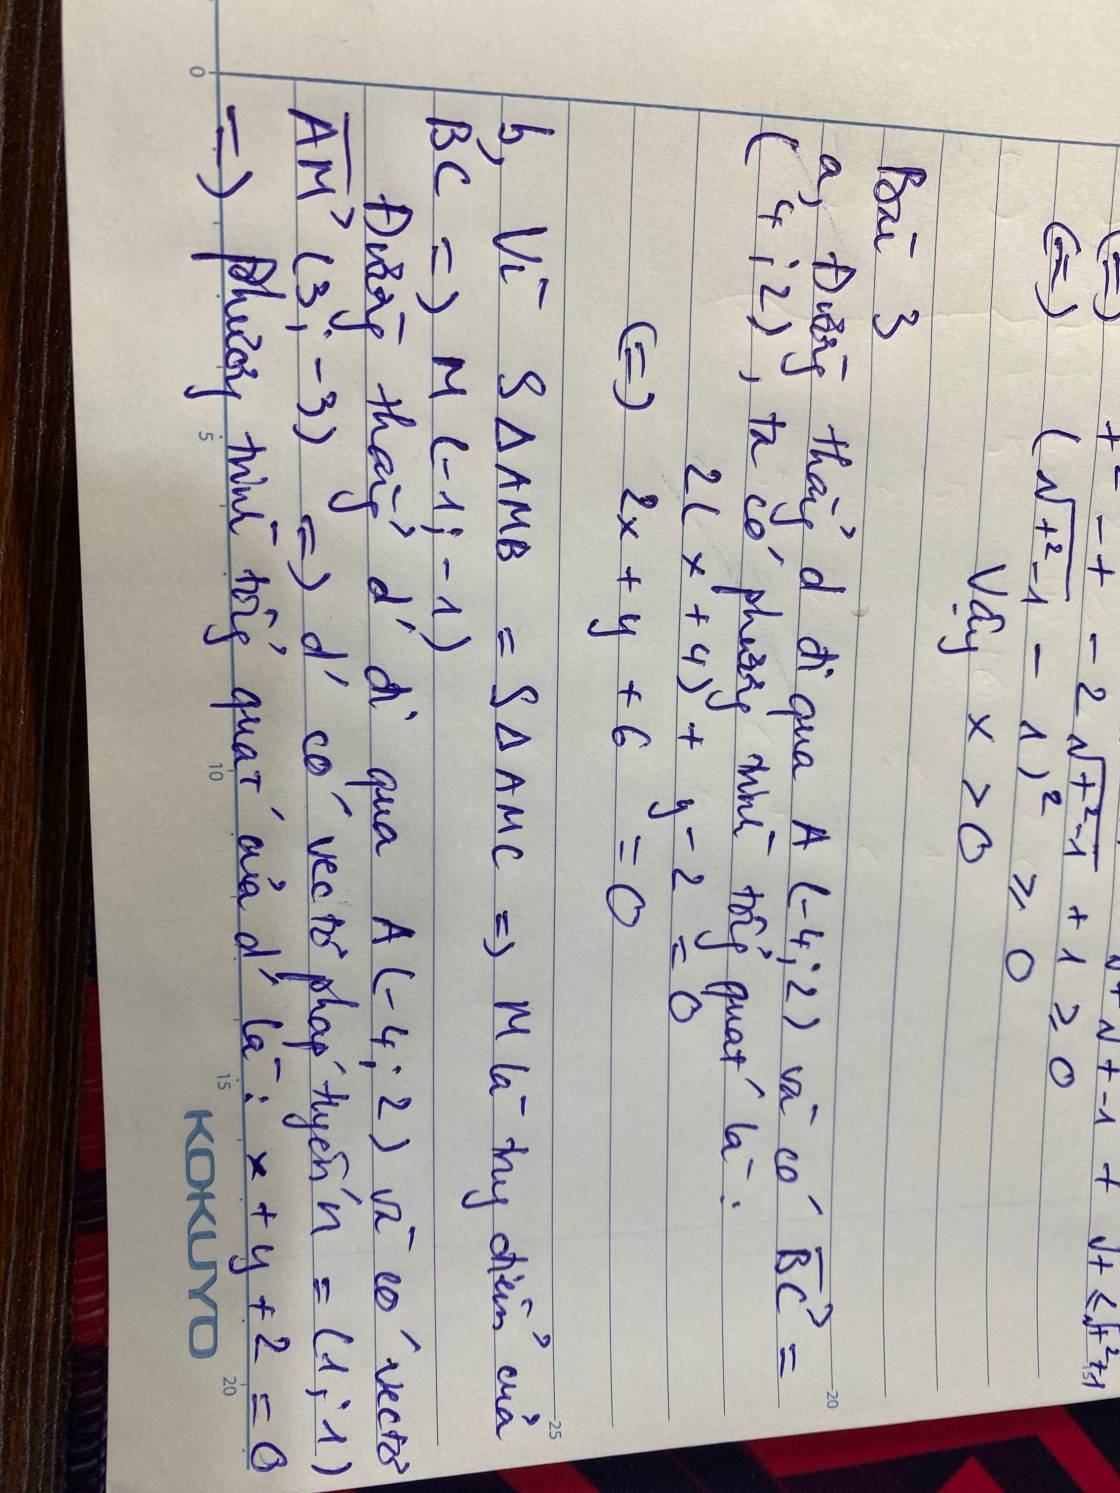 (=) t² - t - 2√t²-1 + 1 ≥ 0
(=) (√t²-1 - 1)² ≥ 0
Vậy x > 0
Bài 3
a, Đường thẳng d đi qua A (-4; 2) và có BC =
(4; 2), ta có phương trình tổng quát là:
2(x + 4) + y - 2 = 0
(=) 2x + y + 6 = 0
b, Vì SΔAMB = SΔAMC =) M là trung điểm của
BC =) M (-1; -1)
Đường thẳng d' đi qua A (-4; 2) và có vectơ
AM (3; -3) =) d' có vectơ pháp tuyến n = (1; 1)
=) phương trình tổng quát của d' là: x + y + 2 = 0
0 5 10 15 20
20
25
KOKUYO